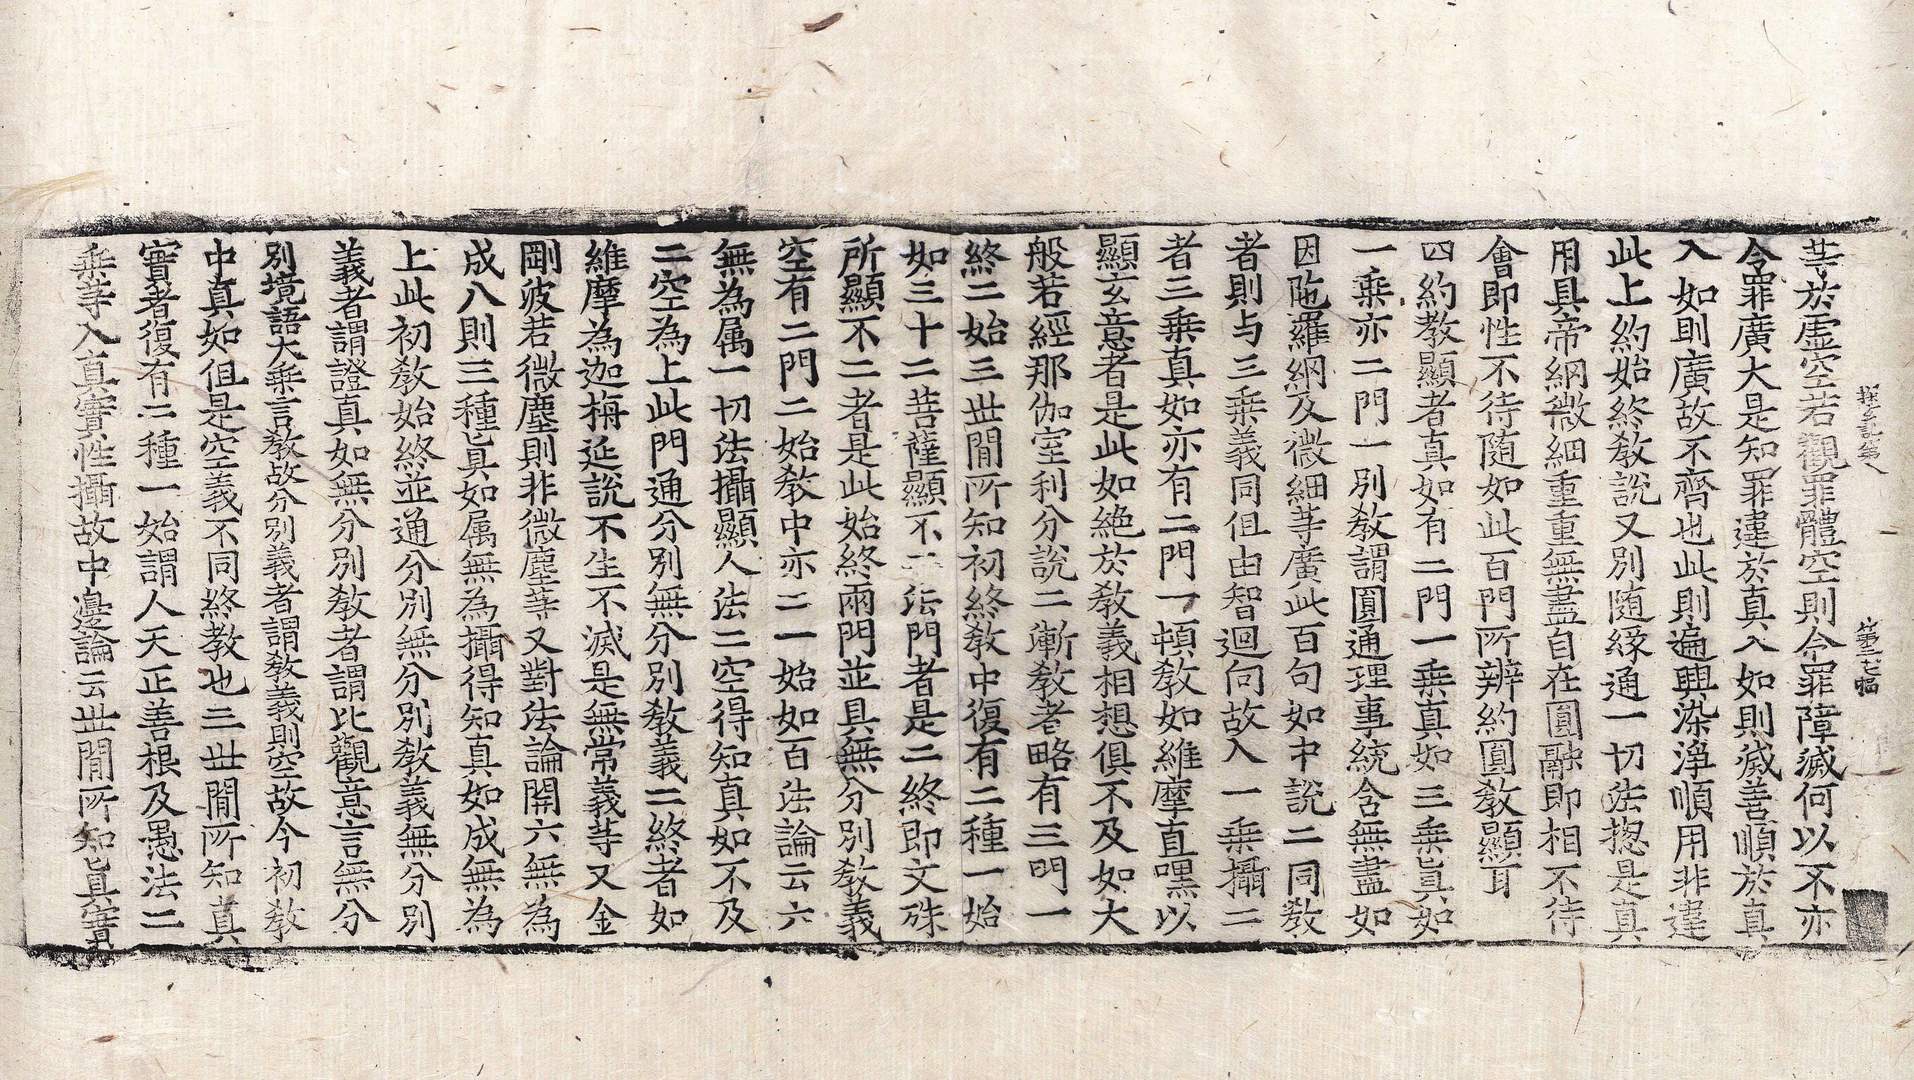 探玄記第八
第二七幅
䒭扵虛空若觀罪體空則令罪障滅何以不亦
令罪廣大是知罪違扵真入如則滅善順扵真
入如則廣故不齊也此則遍興染淨順用非違
此上約始終教說又別随緣通一切法揔是真
用具帝網微細重重無盡自在圓融即相不待
會即性不待随如此百門所辨約圓教顯耳
四約教顯者真如有二門一乗真如三乗真如
一乗亦二門一別教謂圓通理事統含無盡如
因陁羅網及微細䒭廣此百句如中說二同教
者則与三乗義同但由智迴向故入一乗攝二
者三乗真如亦有二門一頓教如維摩直嘿以
顯玄意者是此如絶扵教義相想俱不及如大
般若經那伽室利分說二漸教者略有三門一
終二始三世間所知初終教中復有二種一始
如三十二菩薩顯不二法門者是二終即文殊
所顯不二者是此始終兩門並具無分別教義
空有二門二始教中亦二一始如百法論云六
無為属一切法攝顯人法二空得知真如不及
二空為上此門通分別無分別教義二終者如
維摩為迦栴延說不生不滅是無常義䒭又金
剛波若微塵則非微塵䒭又對法論開六無為
成八則三種真如属無為攝得知真如成無為
上此初教始終並通分別無分別教義無分別
義者謂證真如無分別教者謂比觀意言無分
別境語大乗言教故分別義者謂教義則空故今初教
中真如但是空義不同終教也三世間所知真
實者復有二種一始謂人天正善根及愚法二
乗䒭入真實性攝故中邊論云世間所知真實